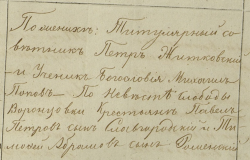 По женихѣ: Титулярный со-
вѣтникъ Петръ Житковскій
и Ученикъ Богословія Михаилъ
Поповъ – По Невѣстѣ Слободы
Воронцовки Крестьянъ Павелъ
Петровъ сынъ Славгородскій и Ти-
мофей Абрамовъ сынъ